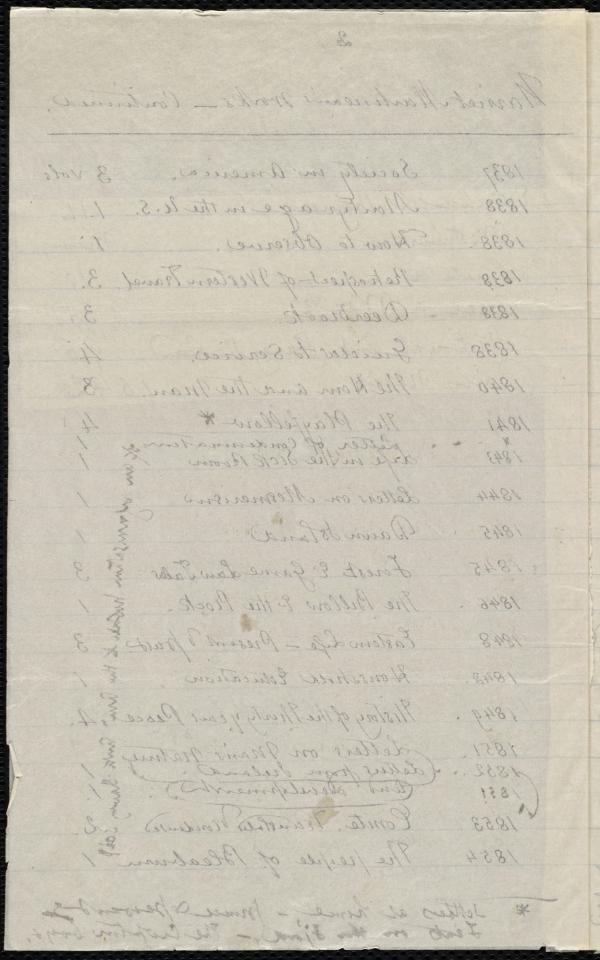 2
Harriet Martineau's Works — Continued.
1837 Society in America. 3 vols
1838 Martyr age in the U.S. 1.
1838 How to Observe. 1
1838 Retrospect of Western Travel 3.
1838 Deerbrook. 3.
1838 Guides to Service. 4
1840 The Hour and the Man. 3
1841 The Playfellow * 4
Letter of 1
1843 Life in the Sick Room 1
1844 Letters on Mesmerism 1
1845 Dawn Island 1
1845 Forest & Game Law Tales 3
1846 The Billow & the Rock. 1
1848 Eastern Life – Present & Past 3
1848 Household Education 1
1849 History of the Thirty years Peace, 4.
1851 Letters on Man's Nature
1852 Letters from Ireland 1
1851 and development 1
1853 Comte. 2
1854 The people of Bleaburn 1
* Settlers at home – Prince & Peasant
Feats on the Fjord. – The Crofton boys.